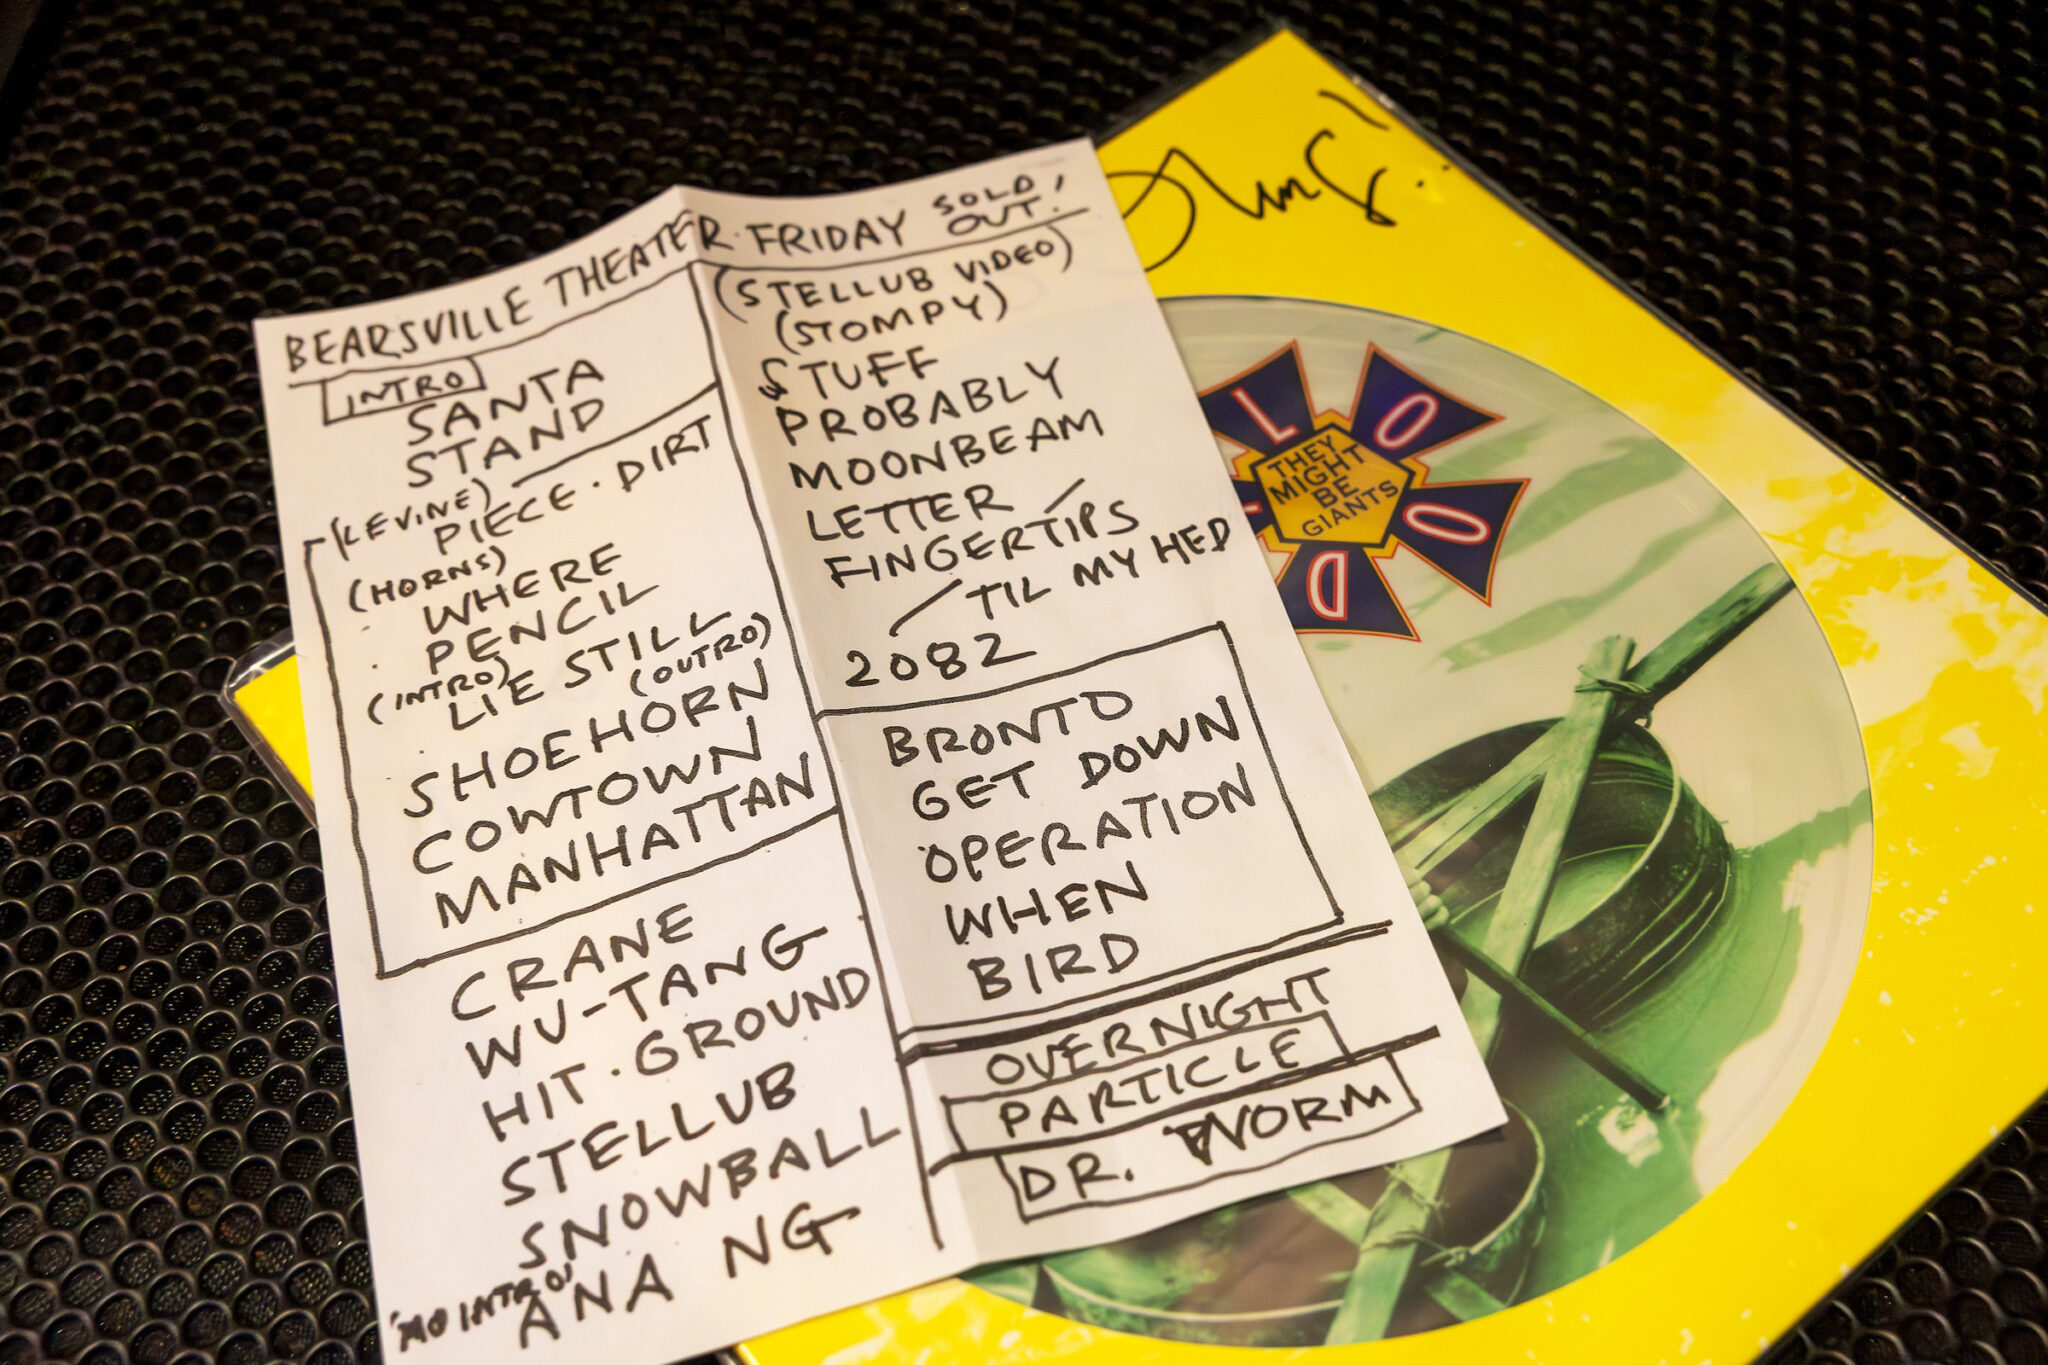 BEARSVILLE THEATER · FRIDAY SOLD OUT!
INTRO
SANTA
STAND
(LEVINE)
PIECE · DIRT
(HORNS)
· WHERE
· PENCIL
(INTRO) LIE STILL (OUTRO)
· SHOEHORN
COWTOWN
MANHATTAN
CRANE
WU-TANG
HIT · GROUND
STELLUB
SNOWBALL
"NO INTRO"
ANA NG
(STELLUB VIDEO)
(STOMPY)
STUFF
PROBABLY
MOONBEAM
LETTER
FINGERTIPS
TIL MY HED
2082
BRONTO
GET DOWN
OPERATION
WHEN
BIRD
OVERNIGHT
PARTICLE
DR. WORM
L O O D
THEY
MIGHT
BE
GIANTS